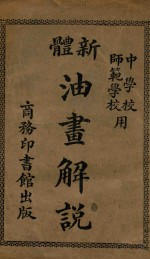 中學校
師範學校用
新體
油畫解説
商務印書館出版